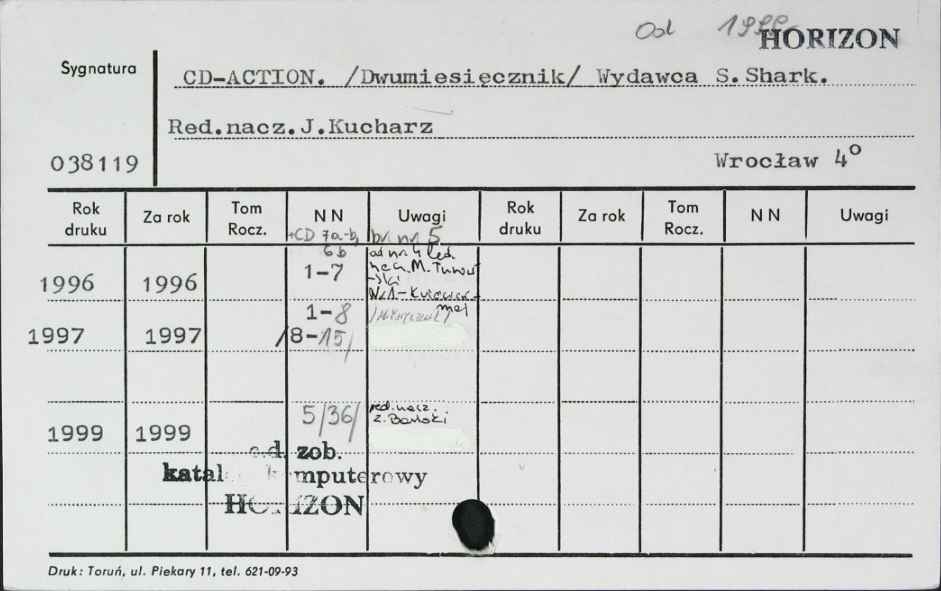 Od 1999
HORIZON
Sygnatura
CD-ACTION. /Dwumiesięcznik/ Wydawca S.Shark.
Red.nacz.J.Kucharz
038119
Wrocław 4°
Rok druku Za rok Tom Rocz. NN Uwagi Rok druku Za rok Tom Rocz. NN Uwagi
+CD 7a-b, br. nr 5
6b od nr. 4 red.
1996 1996 1-7 M.
1-8
1997 1997 /8-15/
5/36/ red. nacz.
1999 1999 Z. Bański
c.d. zob.
katal komputerowy
HORIZON
Druk: Toruń, ul. Piekary 11, tel. 621-09-93